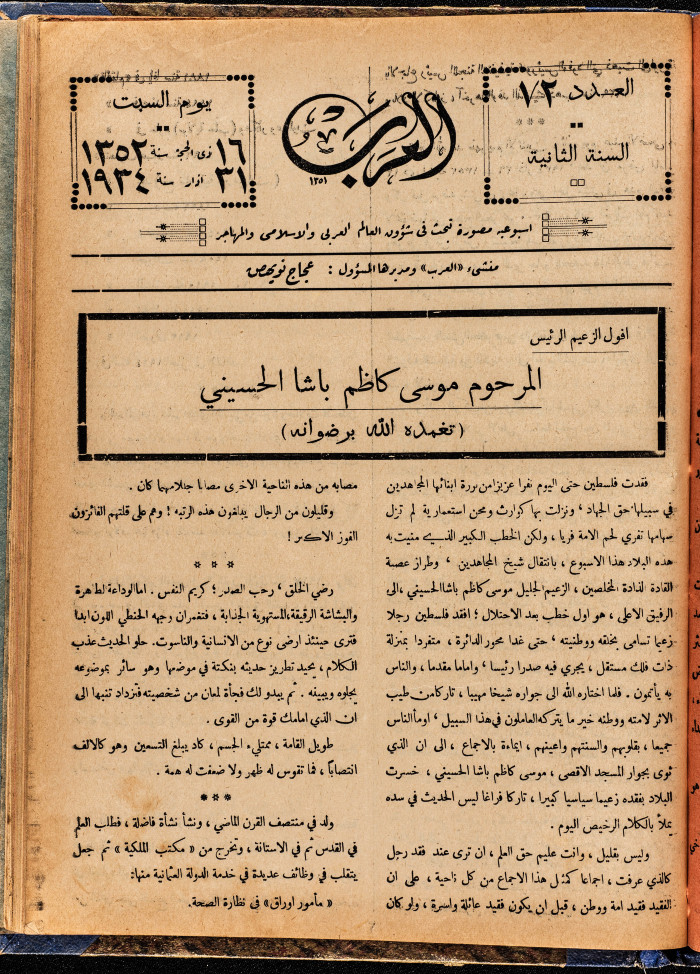 العدد ١/٢
السنة الثانية
العرب
١٣٥١
يوم السبت
١٦ ذى الحجة سنة ١٣٥٢
٣١ آذار سنة ١٩٣٤
اسبوعيه مصورة تبحث فى شؤون العالم العربى والاسلامى والمهاجر
منشىء «العرب» ومديرها المسؤول : عجاج نويهض
افول الزعيم الرئيس
المرحوم موسى كاظم باشا الحسيني
(تغمده الله برضوانه)
فقدت فلسطين حتى اليوم نفرا عزيزا من بررة ابنائها المجاهدين
في سبيلها حق الجهاد ، ونزلت بها كوارث ومحن استعمارية لم تزل
سهامها تفري لحم الامة فريا ، ولكن الخطب الكبير الذي منيت به
هذه البلاد هذا الاسبوع ، بانتقال شيخ المجاهدين ، وطراز عصبة
القادة الذادة المخلصين ، الزعيم الجليل موسى كاظم باشا الحسيني ، الى
الرفيق الاعلى ، هو اول خطب بعد الاحتلال ؛ افقد فلسطين رجلا
زعيما تسامى بخلقه ووطنيته ، حتى غدا محور الدائرة ، متفردا بمنزلة
ذات فلك مستقل ، يجري فيه صدرا رئيسا ، واماما مقدما ، والناس
به يأتمون . فلما اختاره الله الى جواره شيخا مهيبا ، تاركا من طيب
الاثر لامته ووطنه خير ما يتركه العاملون في هذا السبيل ، اومأ الناس
جميعا ، بقلوبهم والسنتهم واعينهم ، ايماءة بالاجماع ، الى ان الذي
ثوى بجوار المسجد الاقصى ، موسى كاظم باشا الحسيني ، خسرت
البلاد بفقده زعيما سياسيا كبيرا ، تاركا فراغا ليس الحديث في سده
يملأ بالكلام الرخيص اليوم .
وليس بقليل ، وانت عليم حق العلم ، ان ترى عند فقد رجل
كالذي عرفت ، اجماعا كمثل هذا الاجماع من كل ناحية ، على ان
الفقيد فقيد امة ووطن ، قبل ان يكون فقيد عائلة واسرة ، ولو كان
مصابه من هذه الناحية الاخرى مصابا جللا مهما كان .
وقليلون من الرجال يبلغون هذه الرتبه ! وهم على قلتهم الفائزون
الفوز الاكبر !
* * *
رضي الخلق ، رحب الصدر ؛ كريم النفس . اما الوداعة الظاهرة
والبشاشة الرقيقة المستهوية الجذابة ، فتغمران وجهه الحنطي اللون ابدا
فترى حينئذ ارضى نوع من الانسانية والناسوت . حلو الحديث عذب
الكلام ، يجيد تطريز حديثه بنكتة في موضعها وهو سائر بموضوعه
يجلوه ويبينه . ثم يبدو لك فجأة لمعان من شخصيته فتزداد تنبها الى
ان الذي امامك قوة من القوى .
طويل القامة ، ممتليء الجسم ، كاد يبلغ التسعين وهو كالالف
انتصابا ، فما تقوس له ظهر ولا ضعفت له همة .
* * *
ولد في منتصف القرن الماضي ، ونشأ نشأة فاضلة ، فطلب العلم
في القدس ثم في الاستانة ، وتخرج من « مكتب الملكية » ثم جعل
يتقلب في وظائف عديدة في خدمة الدولة العثمانية منها:
« مأمور اوراق» في نظارة الصحة.